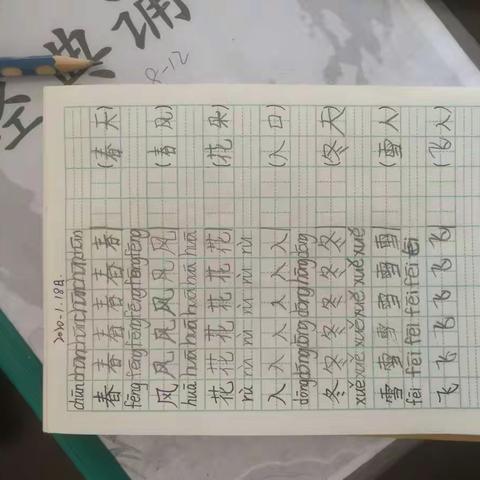 典诵
8-12
2020-1.18日.
chūn chūn chūn chūn chūn chūn
春 春 春 春 春 春 (春天)
fēng fēng fēng fēng fēng fēng
风 风 风 风 风 风 (春风)
huā huā huā huā huā huā
花 花 花 花 花 花 (花朵)
rù rù rù rù rù rù
入 入 入 入 入 入 (入口)
dōng dōng dōng dōng dōng dōng
冬 冬 冬 冬 冬 冬 (冬天)
xuě xuě xuě xuě xuě xuě
雪 雪 雪 雪 雪 雪 (雪人)
fēi fēi fēi fēi fēi fēi
飞 飞 飞 飞 飞 飞 (飞入)